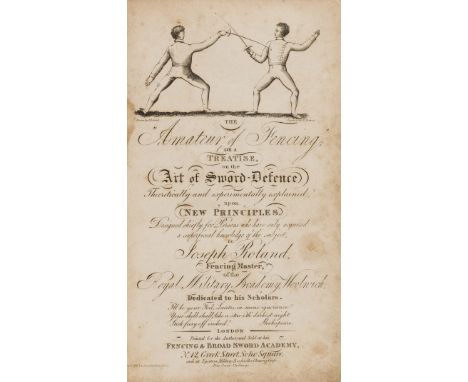 THE
Amateur of Fencing;
OR A
TREATISE,
on the
Art of Sword-Defence,
Theoretically and experimentally explained,
upon
NEW PRINCIPLES;
Designed chiefly for Persons who have only acquired
a superficial knowledge of the subject,
By
Joseph Roland,
Fencing Master,
of the
Royal Military Academy, Woolwich,
Dedicated to his Scholars.
I'll be your Foil, Laertes, in mine ignorance
Your skill shall, like a star i'th darkest night
Stick fiery off indeed. Shakespeare
LONDON
Printed for the Author, and Sold at his
FENCING & BROAD SWORD ACADEMY,
Greek Street, Soho Square,